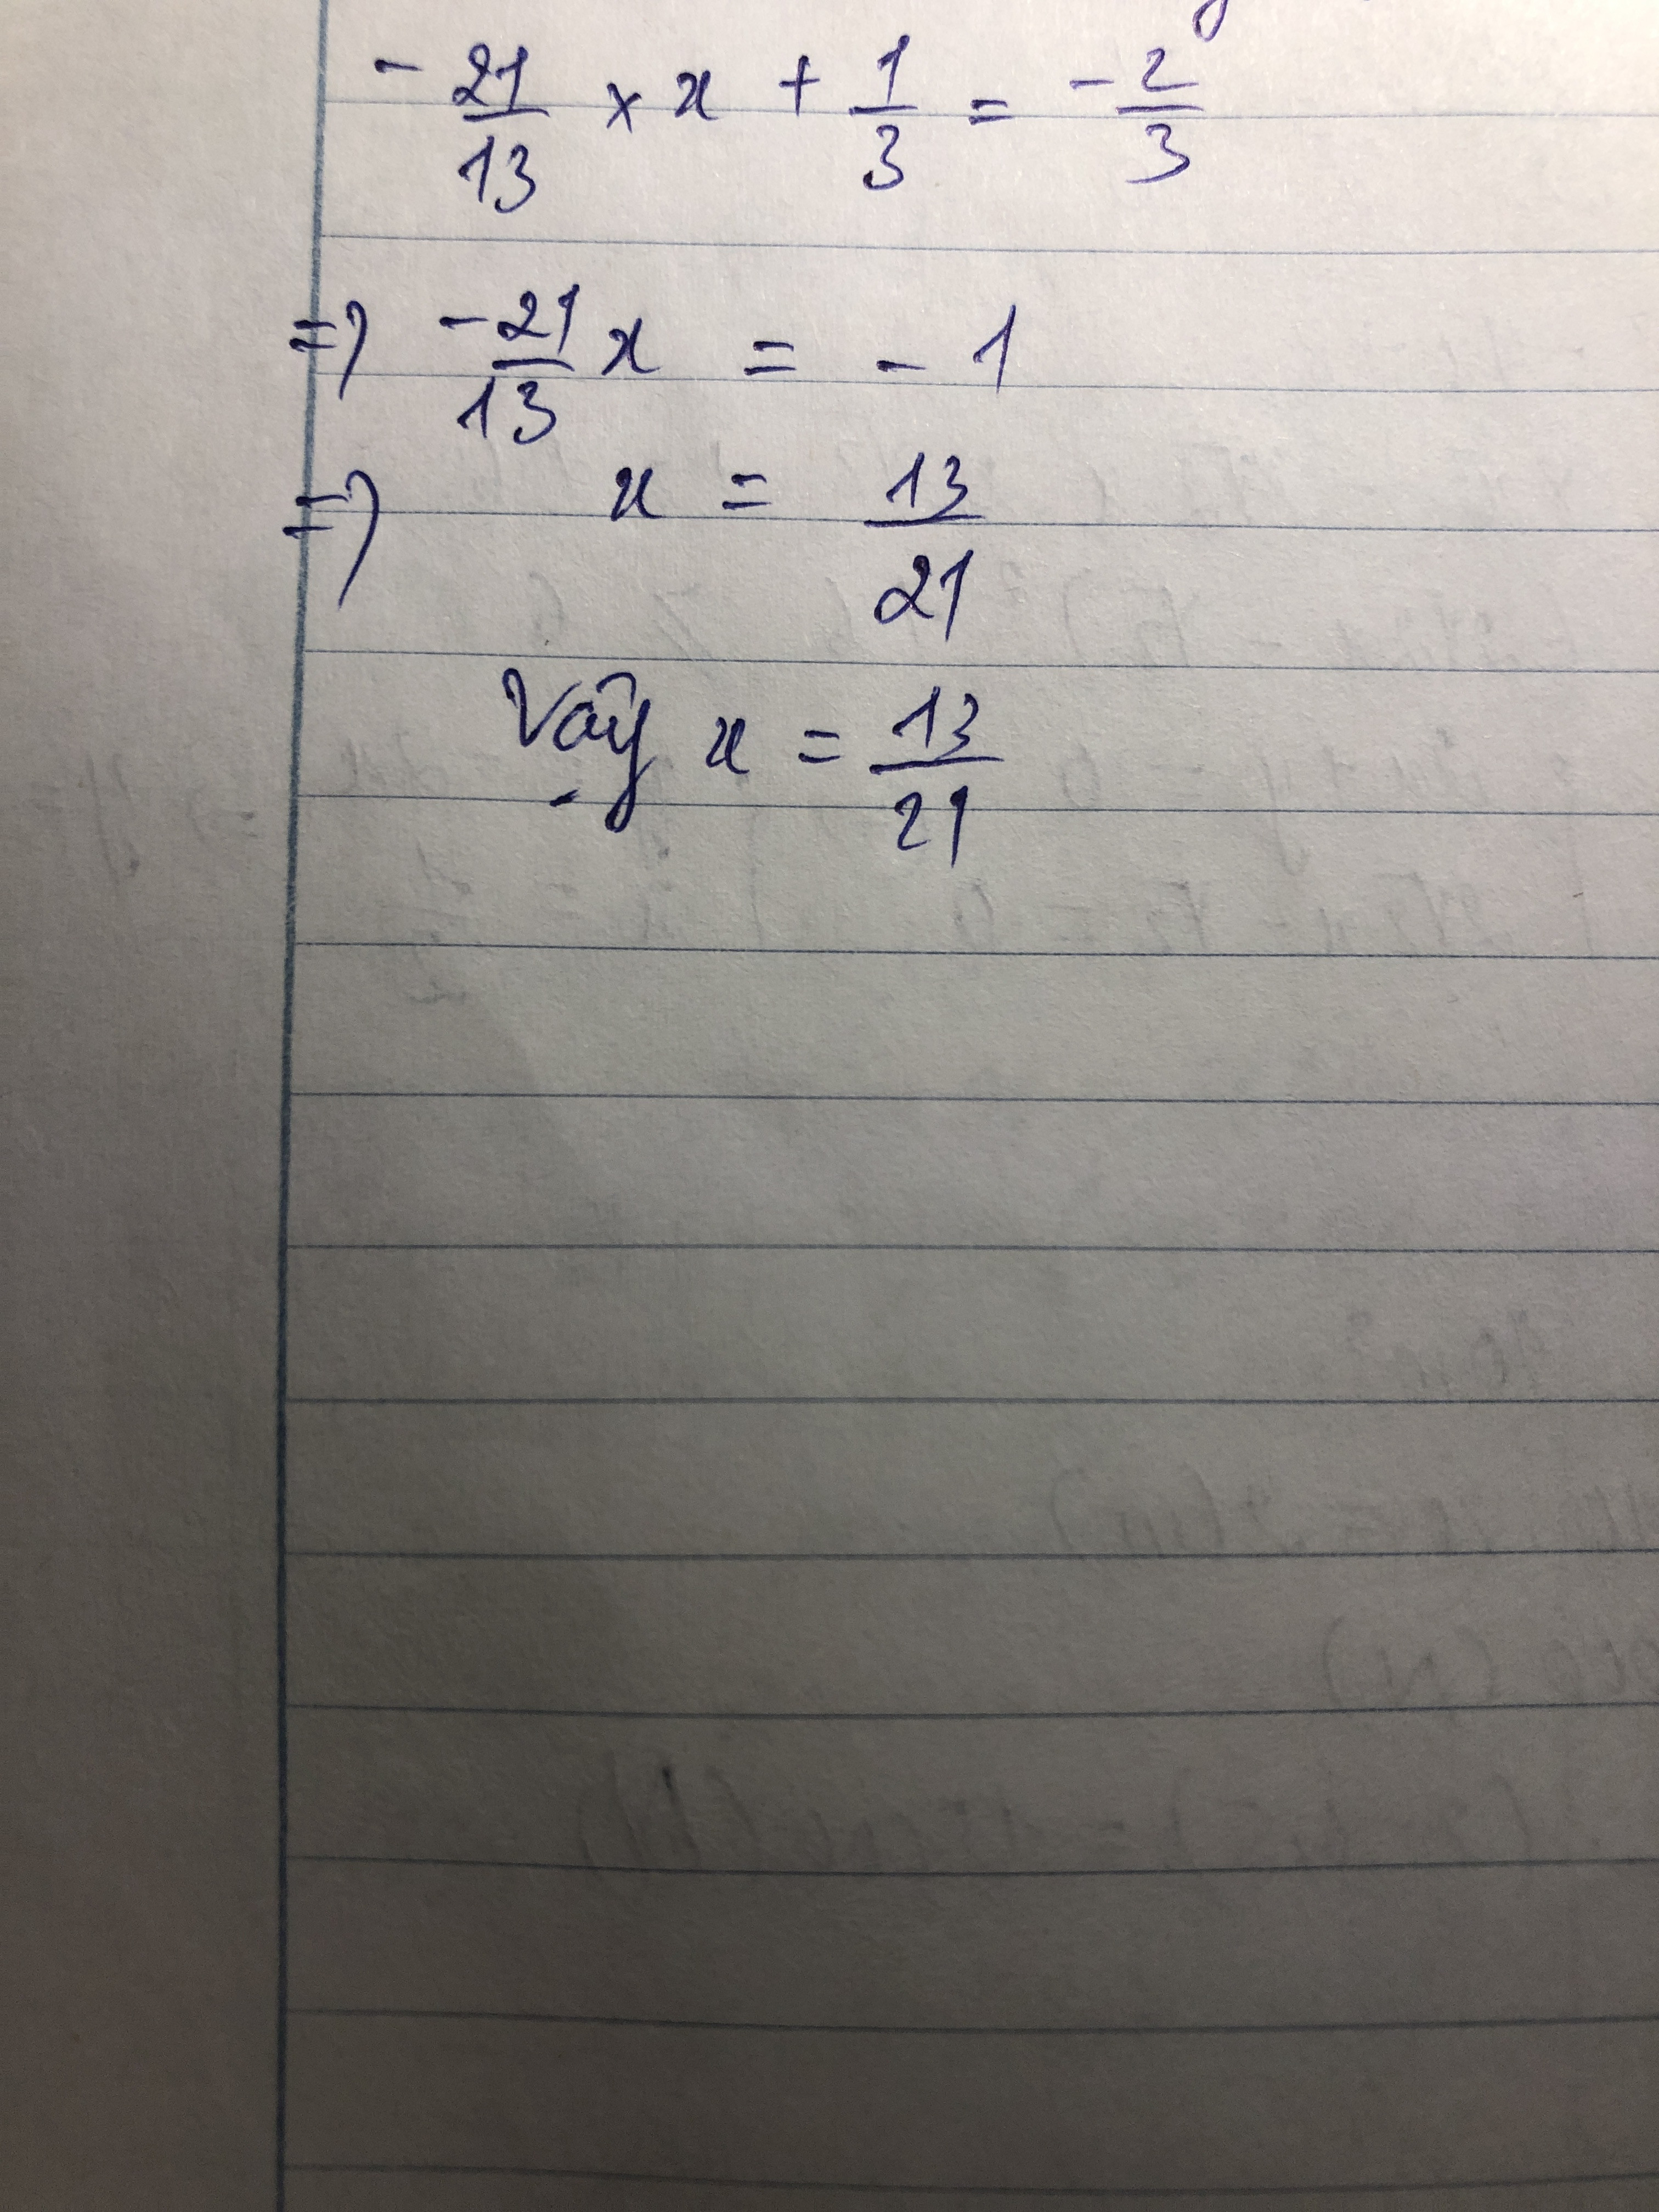 - 21/13 × x + 1/3 = -2/3
=> -21/13 x = -1
=> x = 13/21
Vậy x = 13/21